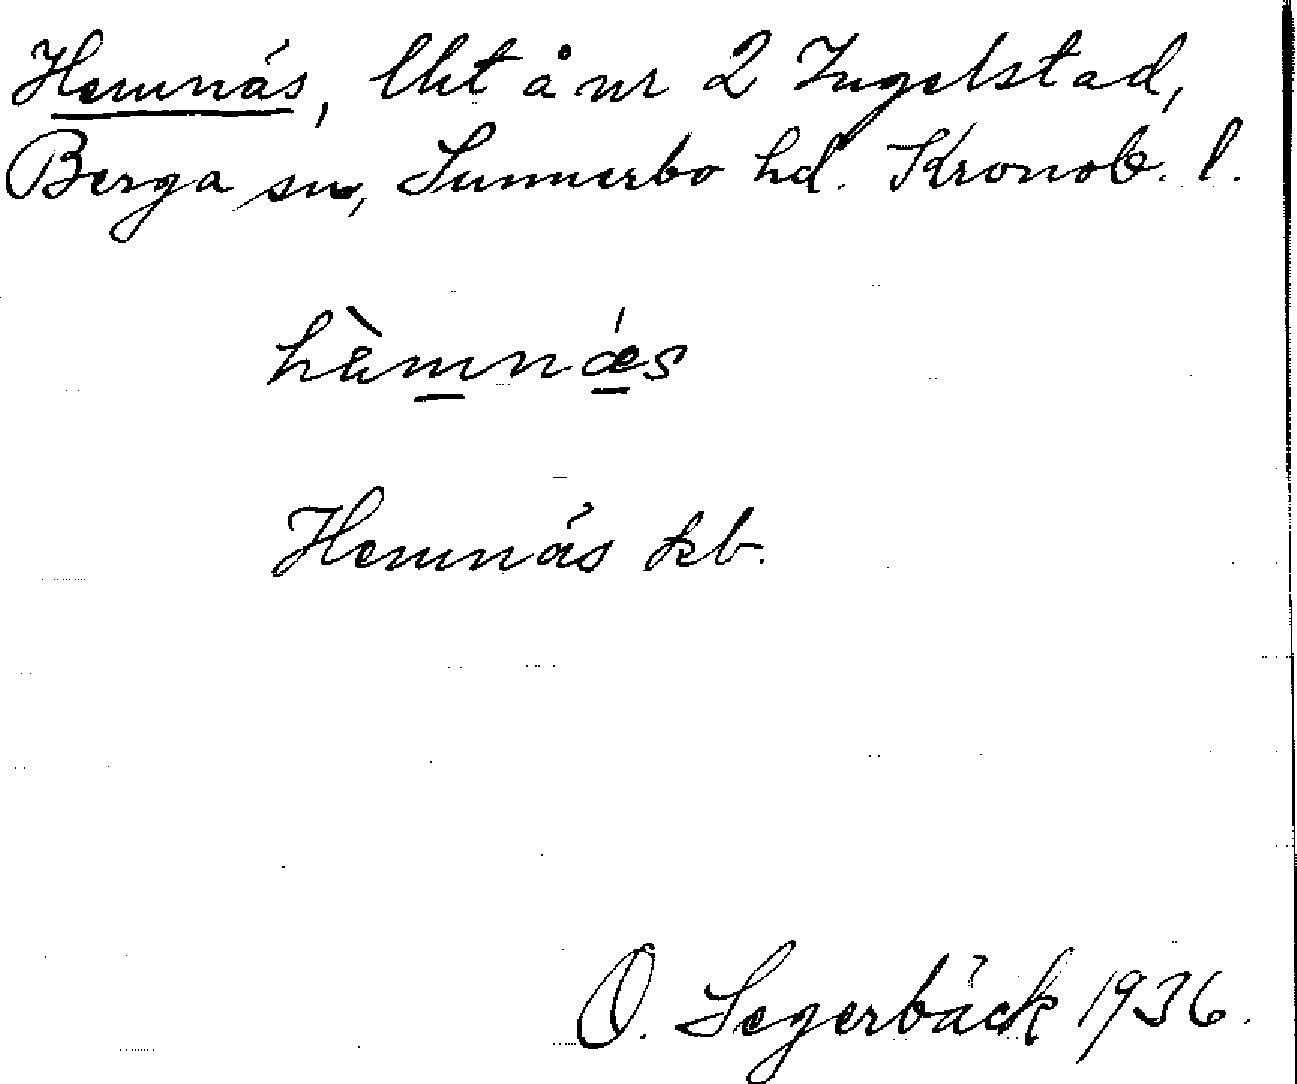 Hemnäs, lht å nr 2 Ingelstad,
Berga sn, Sunnerbo hd. Kronob. l.
hèmnǽs
Hemnäs kb.
O. Segerbäck 1936.